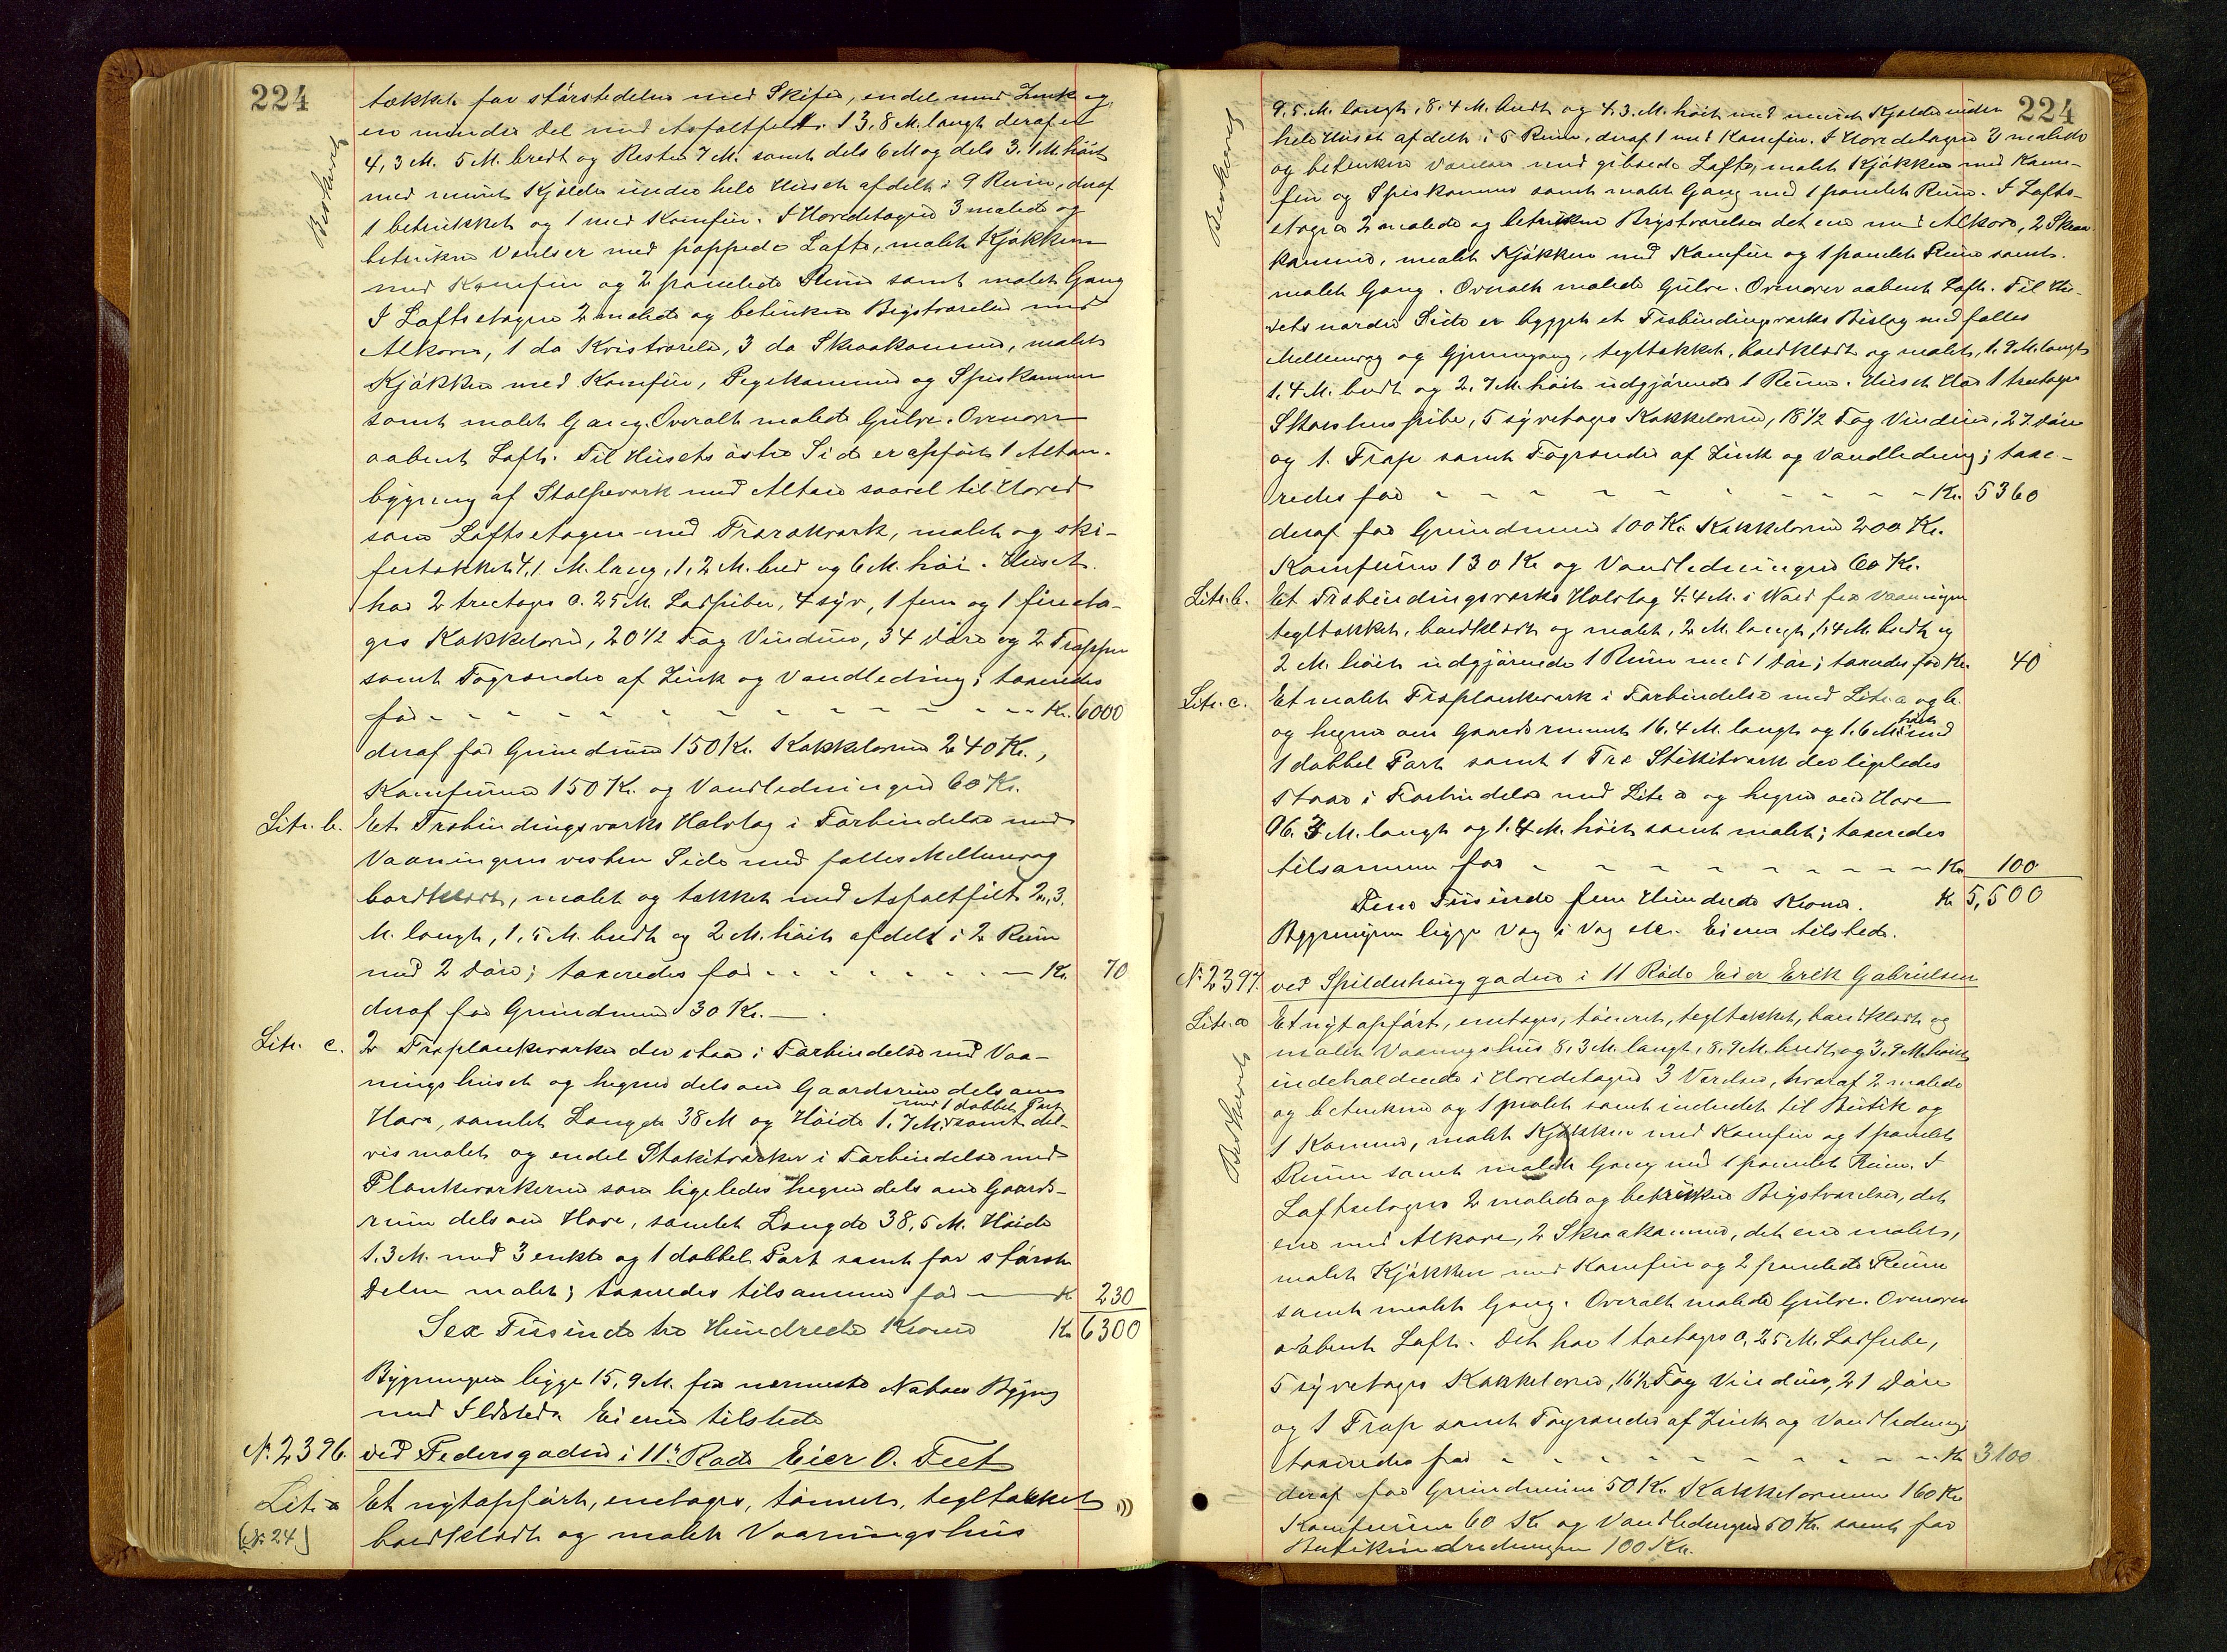 224
tækket for størstedelen med Skifer, endel med Zink og
en mindre del med Asfaltfilt. 13,8 M. langt deraf et
4,3 M. 5 M. bredt og Resten 7 M. samt dels 6 M og dels 3.1 M. høit
med muret Kjelder under hele Huset afdelt i 9 Rum, deraf
1 betrukket og 1 med Komfur. I Hovedetagen 3 malede og
betrukne Værelser med pappede Lofte, malet Kjøkken
med Komfur og 2 panelede Rum samt malet Gang
I Loftsetagen 2 malede og betrukne Bigstværelser med
Alkover, 1 do Kvistværelse, 3 do Skraakammer, malet
Kjøkken med Komfur, Pigekammer og Spiskammer
samt malet Gang. Overalt malede Gulve. Ovenover
aabent Loft. Til Husets østre Side er opført 1 Altan-
bygning af Stolpeverk med Altaner saavel til Hoved
som Loftsetagen med Trærækverk, malet og ski-
fertækket 4,1 M. lang, 1,2 M. bred og 6 M. høi. Huset
har 2 treetages 0.25 M. Lodpiber, 4 syv, 1 fem og 1 fireeta-
ges Kakkelovne, 20 1/2 Fag Vinduer, 34 Døre og 2 Trapper
samt Tagrender af Zink og Vandledning; taxeredes
for - - - - - - - - - - - - Kr. 6000
deraf for Grundmur 150 Kr. Kakkelovne 240 Kr.,
Komfurene 150 Kr. og Vandledningen 60 Kr.
Litr. b. Et Træbindingsverks Halvtag i Forbindelse med
Vaaningens vestre Side med fælles Mellemvæg
bordklædt, malet og tækket med Asfaltfilt 2,3.
M. langt, 1,5 M. bredt og 2 M. høit afdelt i 2 Rum
med 2 Døre; taxeredes for - - - - - - - Kr. 70
deraf for Grundmur 30 Kr.
Litr. c. 2 Træplankeverker der staar i Forbindelse med Vaa-
ningshuset og hegner dels om Gaardsrum dels om
med 1 dobbel Port
Have, samlet Længde 38 M og Høide 1.7 M. samt del-
vis malet og endel Stakitværker i Forbindelse med
Plankeverkerne som ligeledes hegner dels om Gaards-
rum dels om Have, samlet Længde 38,5 M. Høide
1.3 M. med 3 enkte og 1 dobbel Port samt for største
Delen malet; taxeredes tilsammen for - Kr 230
Sex Tusinde tre Hundrede Kroner Kr 6300
Bygningen ligger 15,9 M. fra nærmeste Nabos Bygning
med Ildsted. Eieren tilstede
No. 2396. ved Pedersgaden i 11te Rode Eier O. Teet
Litr a Et nytopført, enetages, tømret, tegltækket
bordklædt og malet Vaaningshus
224
9,5 M. langt, 8.4 M. bredt og 4.3 M. høit med muret Kjelder under
hele Huset afdelt i 5 Rum, deraf 1 med Komfur. I Hovedetagen 3 malede
og betrukne Værelser med gibsede Lofte, malet Kjøkken med Kom-
fur og Spiskammer samt malet Gang med 1 panelet Rum. I Lofts-
etagen 2 malede og betrukne Bigstværelser det ene med Alkove, 2 Skraa
kammer, malet Kjøkken med Komfur og 1 panelet Rum samt
malet Gang. Overalt malede Gulve. Ovenover aabent Loft. Til Hu-
sets nordre Side er bygget et Træbindingsverks Bislag med fælles
Mellemvæg og Gjennemgang, tegltækket, bordklædt og malet, 1.9 M. langt
1,4 M. bredt og 2.7 M. høit udgjørende 1 Rum. Huset har 1 treetages
Skorstenspibe, 5 syvetages Kakkelovne, 18 1/2 Fag Vinduer, 27 Døre
og 1. Trap samt Tagrender af Zink og Vandledning; taxe-
redes for - - - - - - - - - - Kr. 5360
deraf for Grundmur 100 Kr. Kakkelovne 200 Kr.
Komfurene 130 Kr og Vandledningen 60 Kr.
Litr. b. Et Træbindingsverks Halvtag 4.4 M. i Nord fra Vaaningen
tegltækket, bordklædt og malet, 2 M. langt, 1.4 M. bredt og
2 M. høit udgjørende 1 Rum med 1 Dør; taxeredes for Kr. 40
Litr. c. Et malet Træplankeverk i Forbindelse med Litr. a og b.
og hegner om Gaardsrummet 16.4 M. langt og 1.6 M. høit med
1 dobbel Port samt 1 Træ Stikitverk der ligeledes
staar i Forbindelse med Litr a og hegner om Have
langt og 1.4 M. høit samt malet; taxeredes
tilsammen for - - - - - - - - - Kr 100
Fem Tusinde fem Hundrede Kroner. Kr 5,500
Bygningen ligger Væg i Væg etc. Eieren tilstede.
No. 2397. ved Spilderhaug gaden i 11 Rode Eier Erik Gabrielsen
Litr. a Et nytopført, enetages, tømret, tegltækket, bordklædt og
malet Vaaningshus 8,3 M. langt, 8.9 M. bredt og 3,9 M. høit
indeholdende i Hovedetagen 3 Værelser, hvoraf 2 malede
og betrukne og 1 malet samt indredet til Butik og
1 Kammer, malet Kjøkken med Komfur og 1 panelet
Rum samt malet Gang med 1 panelet Rum. I
Loftsetagen 2 malede og betrukne Bigstværelser, det
ene med Alkove, 2 Skraakammer, det ene malet,
malet Kjøkken med Komfur og 2 panelede Rum
samt malet Gang. Overalt malede Gulve. Ovenover
aabent Loft. Det har 1 toetages 0,25 M. Lodpibe,
5 syvetages Kakkelovne, 16 1/2 Fag Vinduer, 21 Døre
og 1 Trap samt Tagrender af Zink og Vandledning;
taxeredes for - - - - - - - - - Kr 3100
deraf for Grundmuren 50 Kr. Kakkelovnene 160 Kr
Komfurene 60 Kr og Vandledningen 50 Kr. samt for
Butikindredningen 100 Kr.